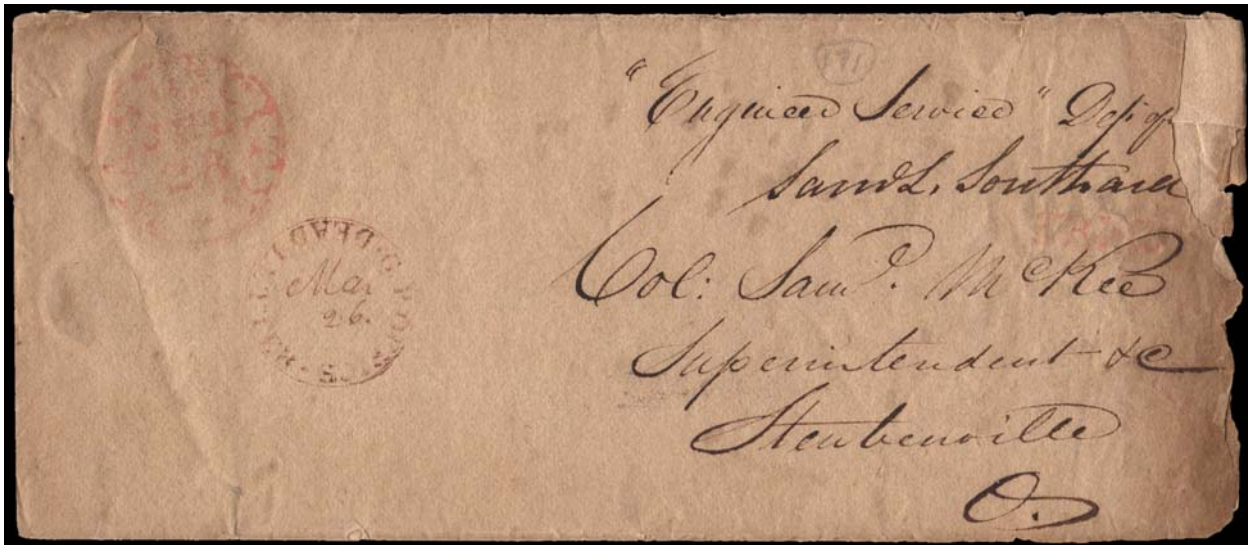 191
"Engineer Service" Dep. of
Saml. L. Southard
FREE
Col: Saml. McKee
Superintendent &c
Steubenville
O.
Mar
26.